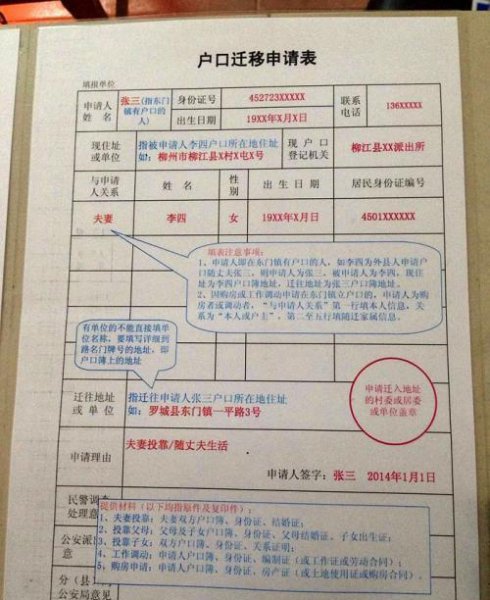 户口迁移申请表
填报单位
申请人
姓名
张三(指东门
镇有户口的
人)
身份证号
452723XXXXX
出生日期
19XX年X月X日
联系
电话
136XXXXX
现住址
或单位
指被申请人李四户口所在地住址
如:柳州市柳江县X村X屯X号
现户口
登记机关
柳江县XX派出所
与申请
人关系
姓名
性
别
出生日期
居民身份证编号
夫妻
李四
女
19XX年X月日
4501XXXXXX
填表注意事项:
1、申请人即在东门镇有户口的人,如李四为外县人申请户
口随丈夫张三,则申请人为张三,被申请人为李四,现住
址为李四户口簿地址,迁往地址为张三户口簿地址。
2、因购房或工作调动申请在东门镇立户口的,申请人为购
房者或调动者,“与申请人关系”第一行填本人信息,关
系为“本人或户主”,第二至五行填随迁家属信息。
有单位的不能直接填单
位名称,要填写详细到
路名门牌号的地址,即
户口簿上的地址
迁往地址
或单位
指迁往申请人张三户口所在地住址
如:罗城县东门镇一平路3号
申请迁入地址
的村委或居委
或单位盖章
申请理由
夫妻投靠/随丈夫生活
申请人签字:张三 2014年1月1日
民警调查
处理意
提供材料(以下均指原件及复印件):
1、夫妻投靠:夫妻双方户口簿、身份证、结婚证;
2、投靠父母:父母及子女户口簿、身份证、父母结婚证、子女出生证;
3、投靠子女:双方户口簿、身份证、关系证明;
4、工作调动:申请人户口簿、身份证、编制证(或工作证或劳动合同)。
5、购房申请:申请人户口簿、身份证、房产证(或土地使用证或购房合同)。
公安派
意
分(县
公安局意见